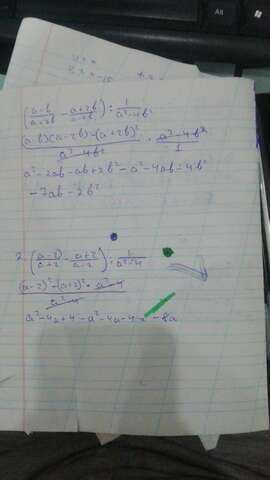 (a-b/a+2b - a+2b/a-2b) : 1/a²-4b²
(a-b)(a-2b)-(a+2b)²/a²-4b² · a²-4b²/1
a²-2ab-ab+2b²-a²-4ab-4b²
-7ab-2b²
2. (a-2/a+2 - a+2/a-2) : 1/a²-4
(a-2)²-(a+2)²·a²-4/a²-4
a²-4a+4-a²-4a-4= -8a